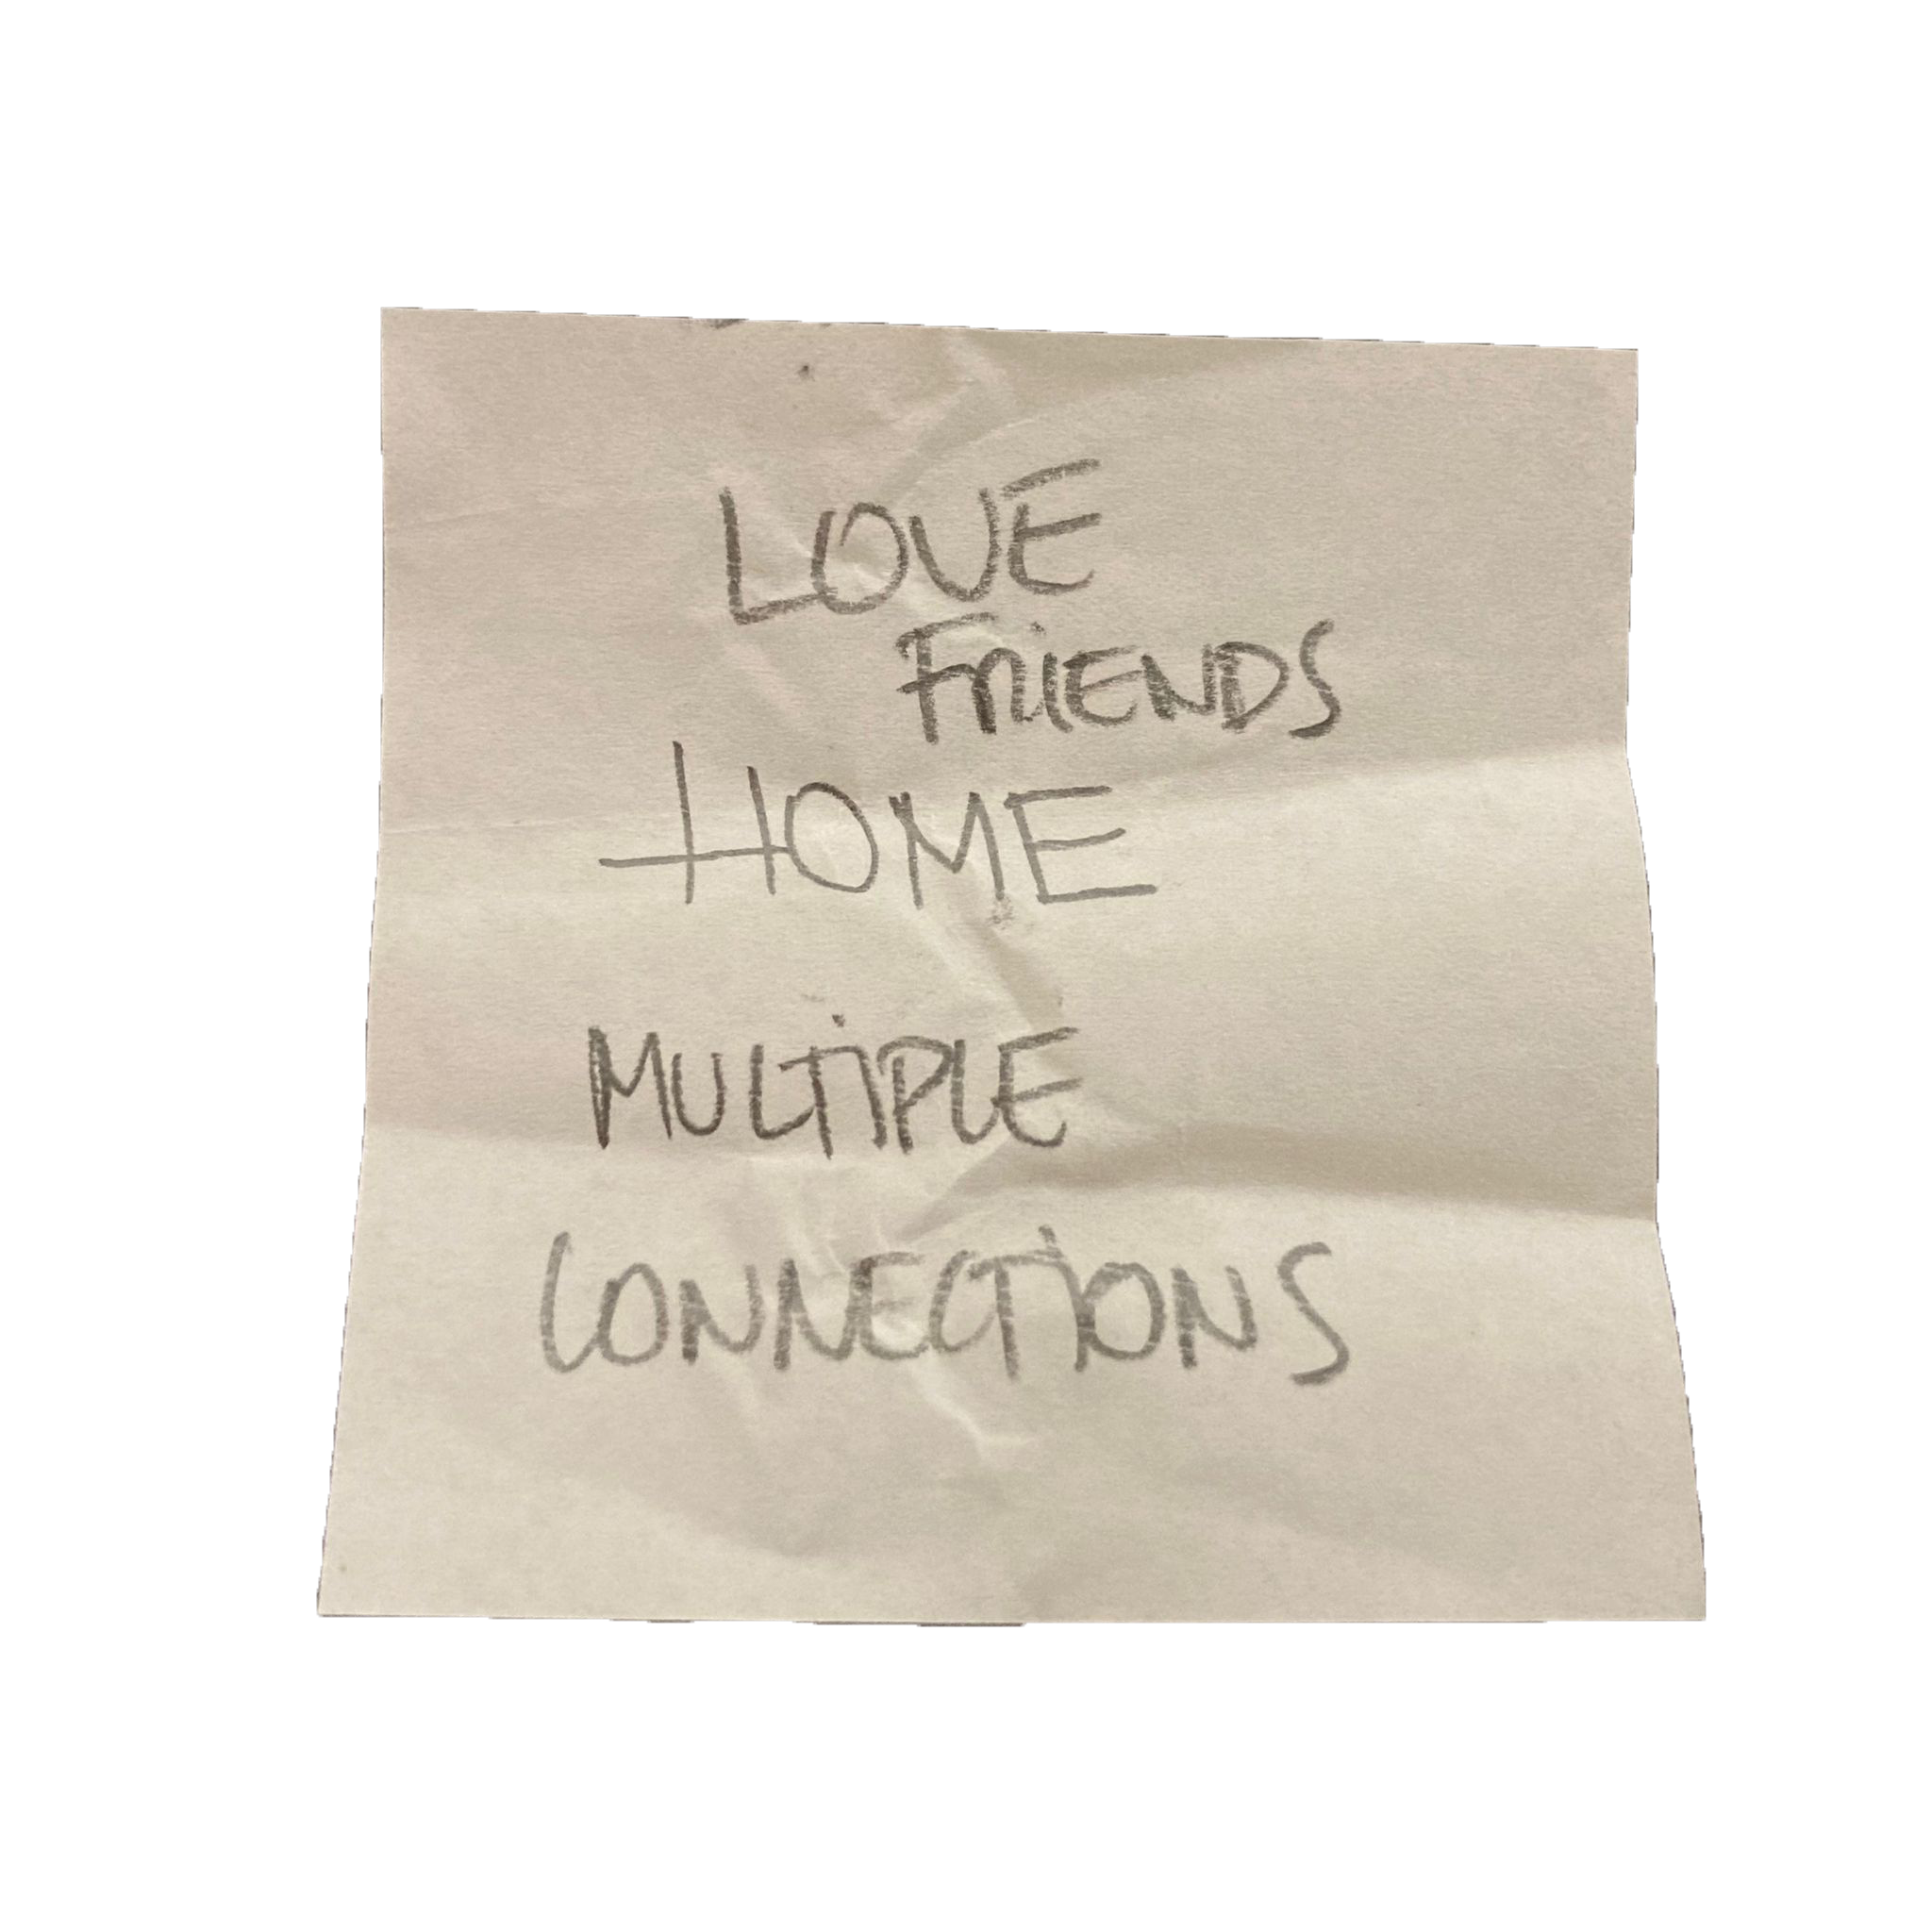 LOVE
FRiENDS
HOME
MULTiPLE
CONNECTiONS